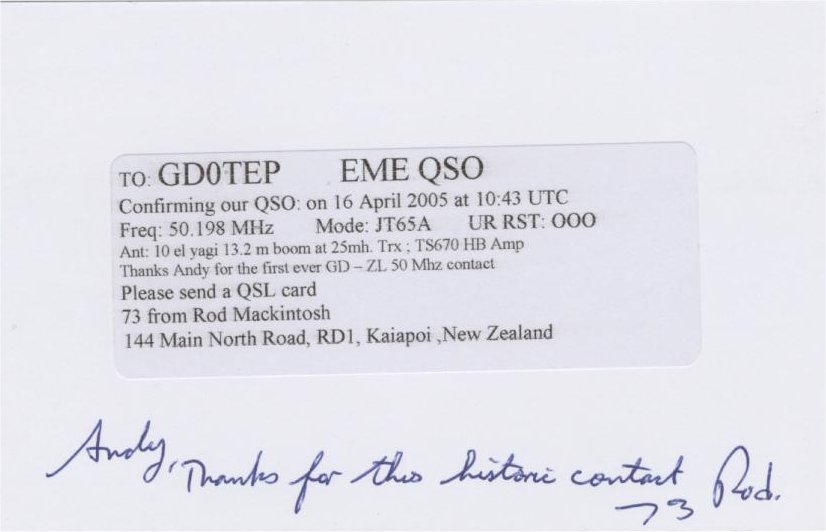 TO: GD0TEP EME QSO
Confirming our QSO: on 16 April 2005 at 10:43 UTC
Freq: 50.198 MHz Mode: JT65A UR RST: OOO
Ant: 10 el yagi 13.2 m boom at 25mh. Trx ; TS670 HB Amp
Thanks Andy for the first ever GD – ZL 50 Mhz contact
Please send a QSL card
73 from Rod Mackintosh
144 Main North Road, RD1, Kaiapoi ,New Zealand
Andy, Thanks for this historic contact
73 Rod.